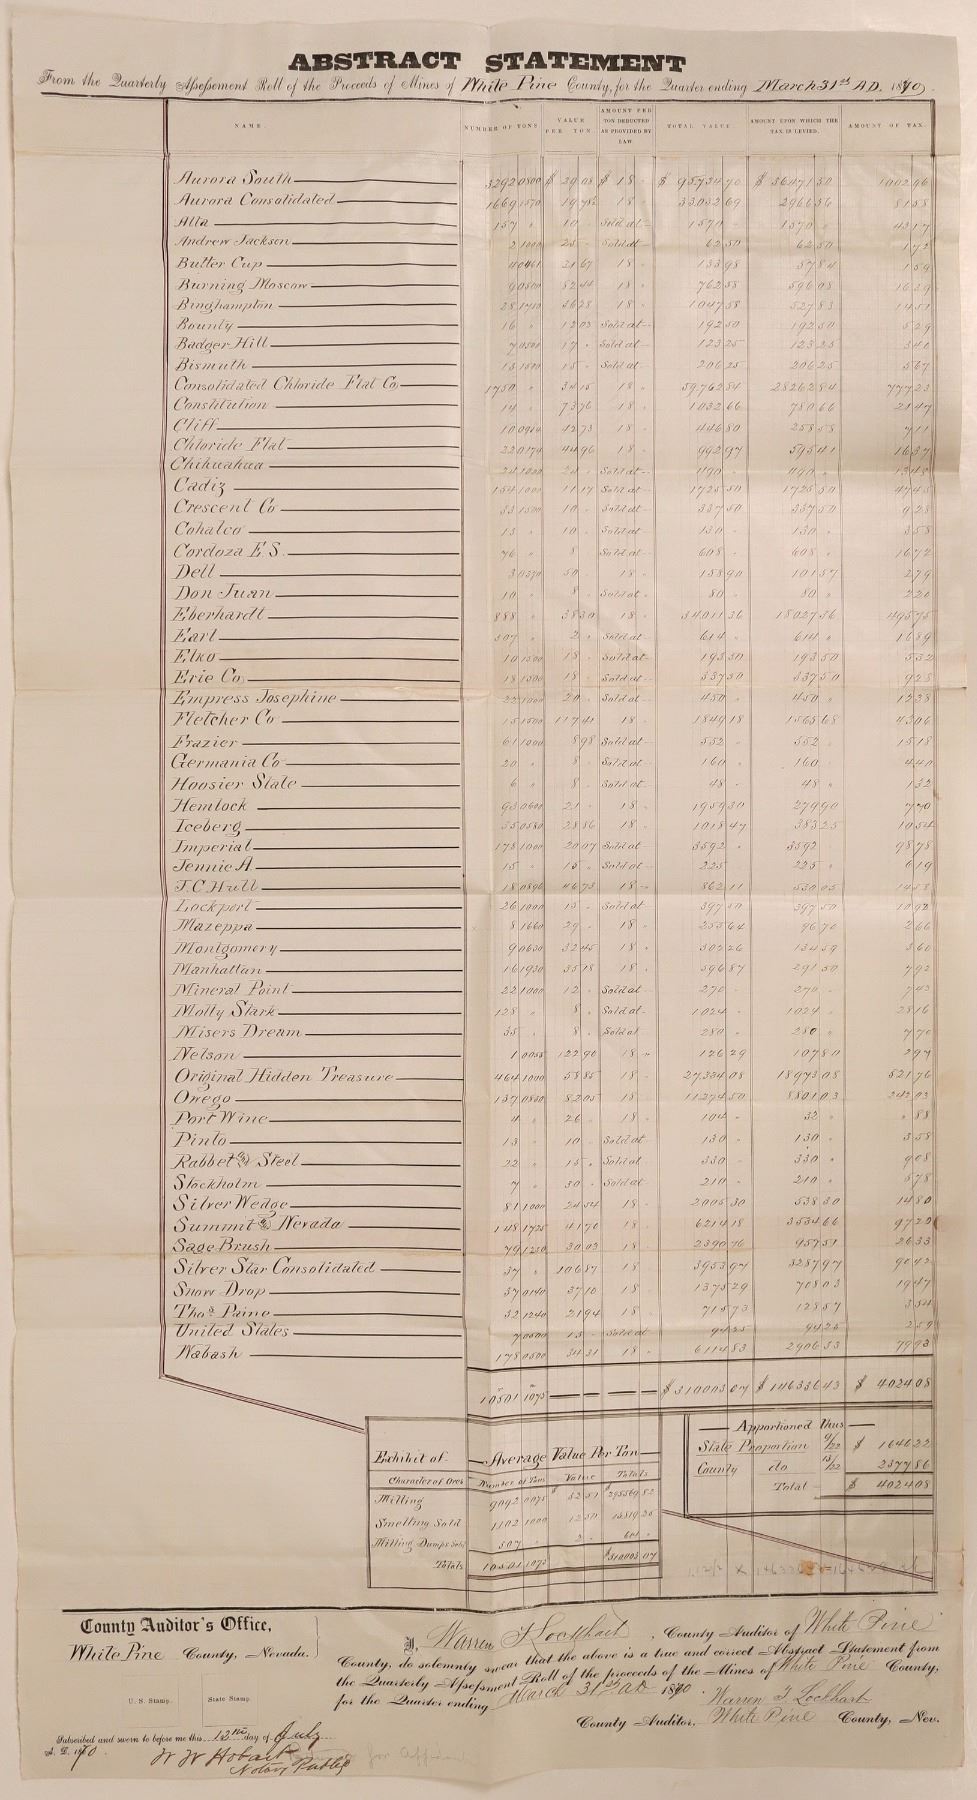 ABSTRACT STATEMENT
From the Quarterly Assessment Roll of the Proceeds of Mines of White Pine County, for the Quarter ending March 31st A.D. 1870.
NAME. NUMBER OF TONS VALUE PER TON. AMOUNT PER TON DEDUCTED AS PROVIDED BY LAW TOTAL VALUE. AMOUNT UPON WHICH THE TAX IS LEVIED. AMOUNT OF TAX.
Aurora South 3292 0800 $ 29 08 $ 18 $ 95734 70 $ 36471 30 1002 96
Aurora Consolidated 1669 1570 19 78 18 33032 69 2966 56 81 58
Alta 157 10 Sold at 1570 1570 43 17
Andrew Jackson 2 1000 25 Sold at 62 50 62 50 1 72
Butter Cup 4 0461 31 67 18 133 98 57 84 1 59
Burning Moscow 9 0500 82 44 18 762 58 596 08 16 39
Binghampton 28 1740 36 28 18 1047 58 527 83 14 51
Bounty 16 12 03 Sold at 192 50 192 50 5 29
Badger Hill 7 0500 17 Sold at 123 25 123 25 3 40
Bismuth 13 1500 15 Sold at 206 25 206 25 5 67
Consolidated Chloride Flat Co 1750 34 15 18 59762 84 28262 84 777 23
Constitution 14 73 76 18 1032 66 780 66 21 47
Cliff 10 42 73 18 446 80 258 58 7 11
Chloride Flat 22 0174 44 96 18 992 97 595 41 16 37
Chihuahua 24 1000 20 Sold at 490 490 13 48
Cadiz 154 1000 11 17 Sold at 1725 50 1725 50 47 45
Crescent Co 33 1500 10 Sold at 337 50 337 50 9 28
Cohalco 13 10 Sold at 130 130 3 58
Cordoza E.S. 76 8 Sold at 608 608 16 72
Dell 3 0370 50 18 158 90 101 57 2 79
Don Juan 10 8 Sold at 80 80 2 20
Eberhardt 888 38 30 18 34011 36 18027 36 495 75
Earl 307 2 Sold at 614 614 16 89
Elko 10 1500 18 Sold at 193 50 193 50 5 32
Erie Co. 18 1500 18 Sold at 337 50 337 50 9 28
Empress Josephine 22 1000 20 Sold at 450 450 12 38
Fletcher Co 15 1500 117 41 18 1849 18 1565 68 43 06
Frazier 61 1000 8 98 Sold at 552 552 15 18
Germania Co 20 8 Sold at 160 160 4 40
Hoosier State 6 8 Sold at 48 48 1 32
Hemlock 93 0600 21 18 1959 30 279 90 7 70
Iceberg 35 0580 28 86 18 1018 47 383 25 10 54
Imperial 178 1000 20 07 Sold at 3592 3592 98 78
Jennie A. 15 15 Sold at 225 225 6 19
J.C. Hull 18 0896 46 73 18 862 11 530 05 14 58
Lockport 26 1000 15 Sold at 397 50 397 50 10 93
Mazeppa 8 1660 29 18 255 64 96 70 2 66
Montgomery 9 0630 32 45 18 302 26 134 59 3 60
Manhattan 16 1930 35 18 18 596 87 291 50 7 92
Mineral Point 22 1000 12 Sold at 270 270 7 43
Molly Stark 128 8 Sold at 1024 1024 28 16
Misers Dream 35 8 Sold at 280 280 7 70
Nelson 1 0058 122 90 18 126 29 107 80 2 97
Original Hidden Treasure 464 1000 58 85 18 27334 08 18973 08 521 76
Owego 137 0800 82 05 18 11274 50 8801 03 242 03
Port Wine 4 26 18 104 32 88
Pinto 13 10 Sold at 130 130 3 58
Rabbet & Steel 22 15 Sold at 330 330 9 08
Stockholm 7 30 Sold at 210 210 5 78
Silver Wedge 81 1000 24 54 18 2005 30 538 30 14 80
Summit & Nevada 148 1725 41 70 18 6214 18 3534 66 97 20
Sage Brush 79 1250 30 03 18 2390 76 957 51 26 33
Silver Star Consolidated 37 106 87 18 3953 97 3287 97 90 42
Snow Drop 37 0140 37 10 18 1375 29 708 03 19 47
Thos. Paine 32 1240 21 94 18 715 73 128 57 3 54
United States 7 0500 13 Sold at 94 25 94 25 2 59
Wabash 178 0500 34 31 18 6114 83 2906 33 79 93
10501 1075 $ 310003 07 $ 146336 43 $ 4024 08
Apportioned thus
State Proportion 9/22 $ 1646 22
County do 13/22 2377 86
Total $ 4024 08
Exhibit of Average Value Per Ton
Character of Ores Number of Tons Value Totals
Milling 9092 0075 $ 32 51 $ 295569 82
Smelting Sold 1102 1000 12 50 13819 25
Milling Dumps Sold 307 2 614
Totals 10501 1075 $ 310003 07
County Auditor's Office,
White Pine County, Nevada.
U. S. Stamp. State Stamp
I, Warren T Lockhart, County Auditor of White Pine
County, do solemnly swear that the above is a true and correct Abstract Statement from
the Quarterly Assessment Roll of the proceeds of the Mines of White Pine County,
for the Quarter ending March 31st A.D. 1870.
Warren T. Lockhart
County Auditor, White Pine County, Nev.
Subscribed and sworn to before me this 13th day of July
A. D. 1870.
W W Hobart
Notary Public